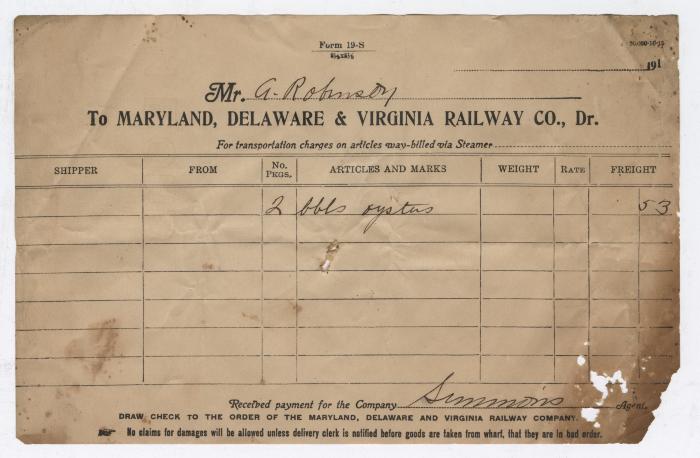 Form 19-S
8½x5½
191
Mr. A. Robinson
To MARYLAND, DELAWARE & VIRGINIA RAILWAY CO., Dr.
For transportation charges on articles way-billed via Steamer
SHIPPER FROM No. Pkgs. ARTICLES AND MARKS WEIGHT RATE FREIGHT
2 bbls oysters 53
Received payment for the Company Simmons Agent.
DRAW CHECK TO THE ORDER OF THE MARYLAND, DELAWARE AND VIRGINIA RAILWAY COMPANY.
No claims for damages will be allowed unless delivery clerk is notified before goods are taken from wharf, that they are in bad order.